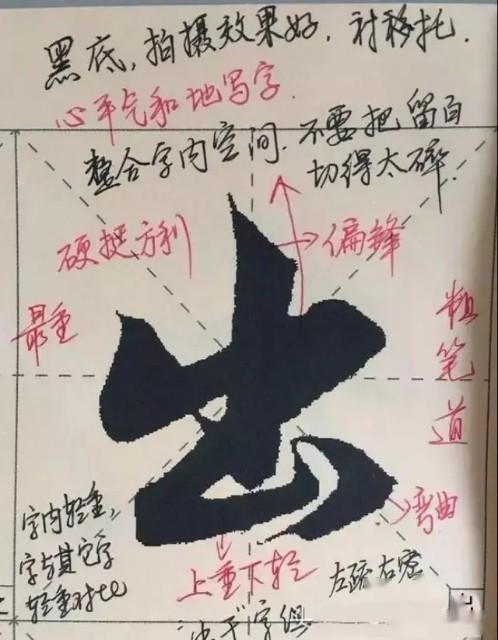 黑底,拍摄效果好,衬移托.
心平气和地写字.
整合字内空间.不要把留白
切得太碎.
硬挺方利
偏锋
最重
粗笔道
出
字内轻重,
字与其它字
轻重对比
弯曲
上重下轻
左疏右密、
字组